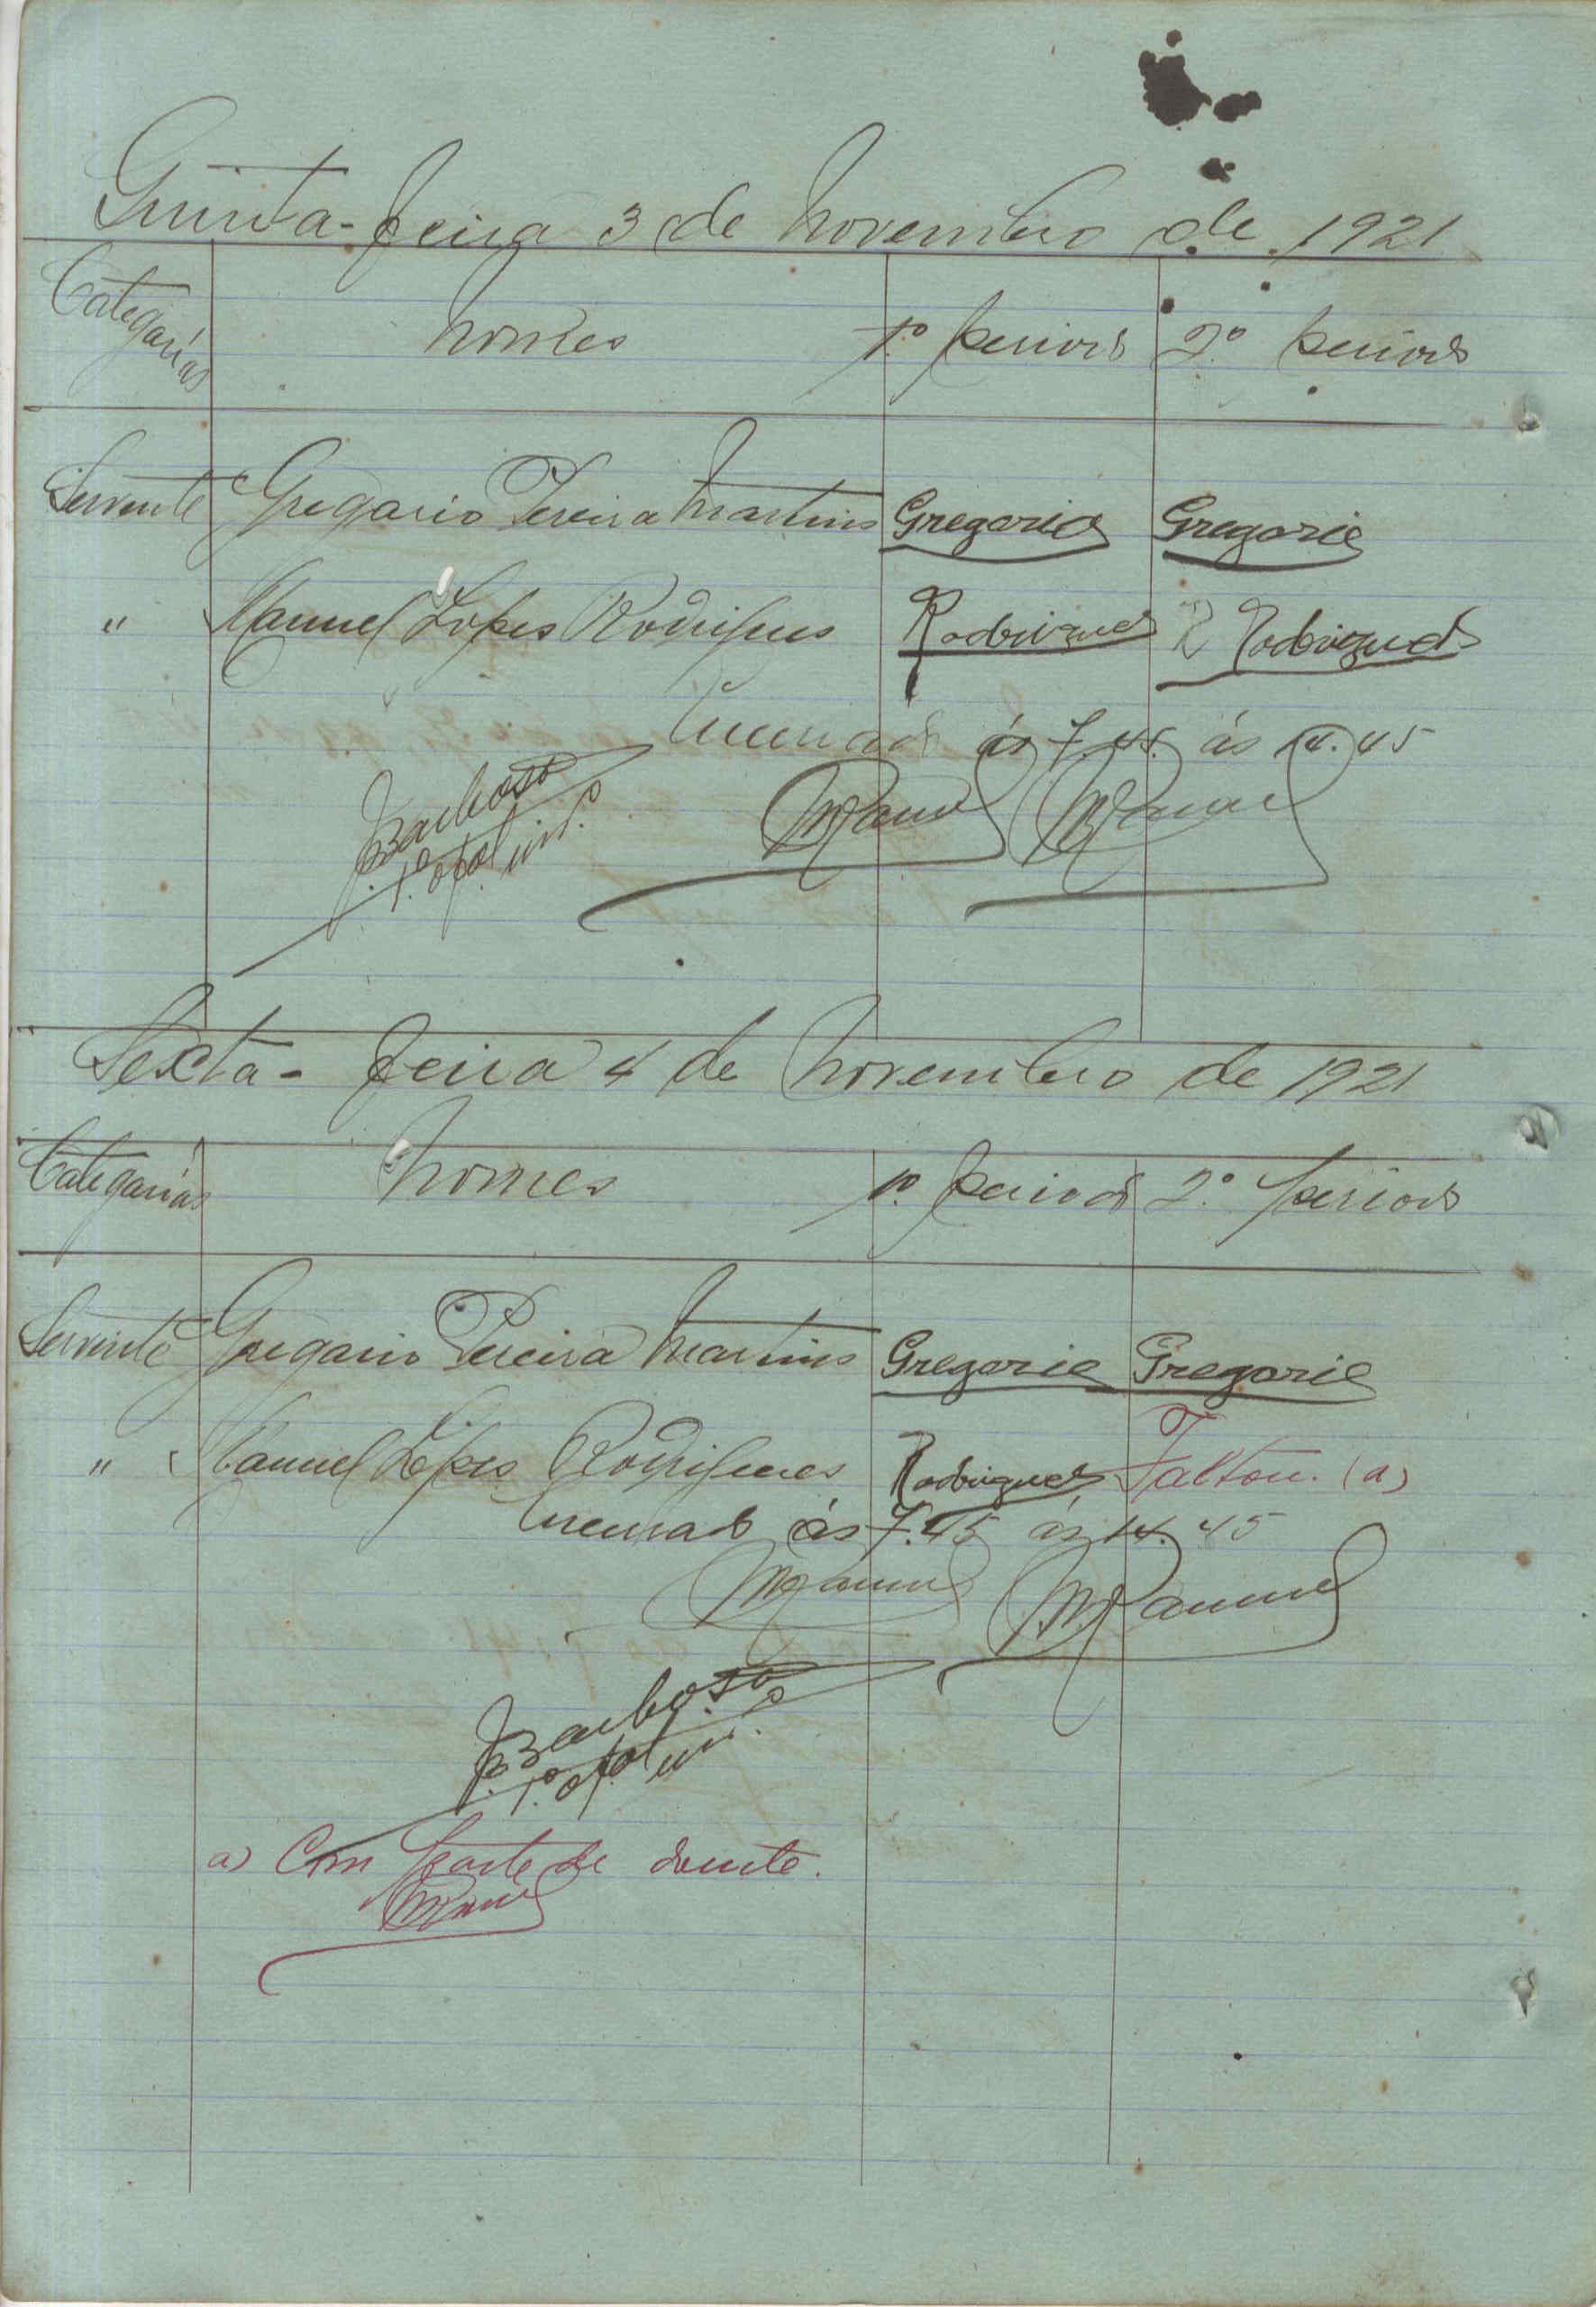 Quinta-feira 3 de Novembro de 1921
Categorias Nomes 1º periodo 2º periodo
Servente Gregorio Pereira Martins Gregorio Gregorio
" Manuel Lopes Rodrigues Rodrigues R Rodrigues
Encerrado ás 7.45 ás 14.45
Barbosa
1º ofal int.º
Sexta-feira 4 de Novembro de 1921
Categorias Nomes 1º periodo 2º periodo
Servente Gregorio Pereira Martins Gregorio Gregorio
" Manuel Lopes Rodrigues Rodrigues Faltou. (a)
Encerrado ás 7.45 ás 14.45
Barbosa
1º ofal int.º
a) Com parte de doente.